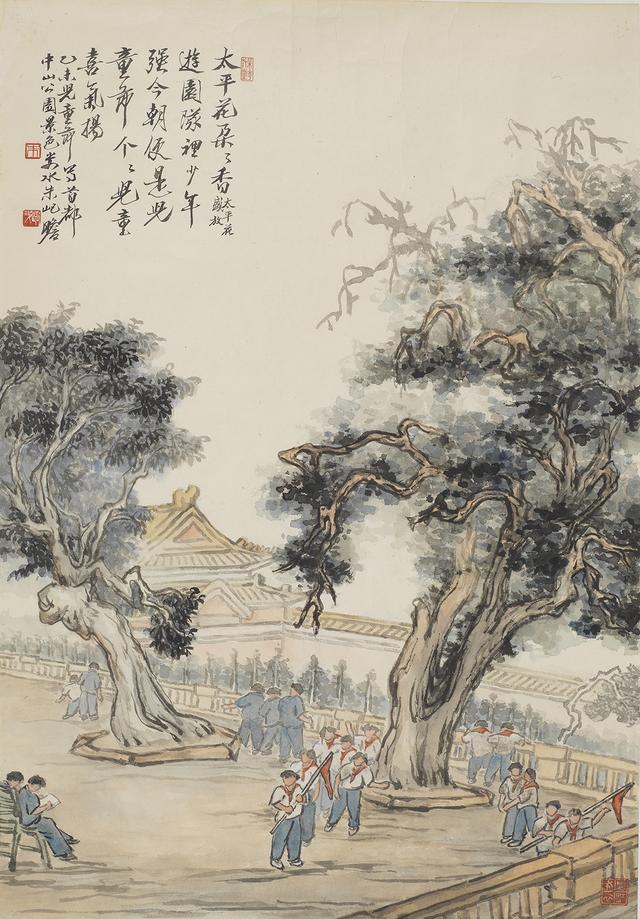 太平花朵〻香
太平花
盛放
遊園隊裡少年
强今朝便是兒
童節个〻兒童
喜氣揚
乙未兒童節寫首都
中山公園景色婁水朱屺瞻